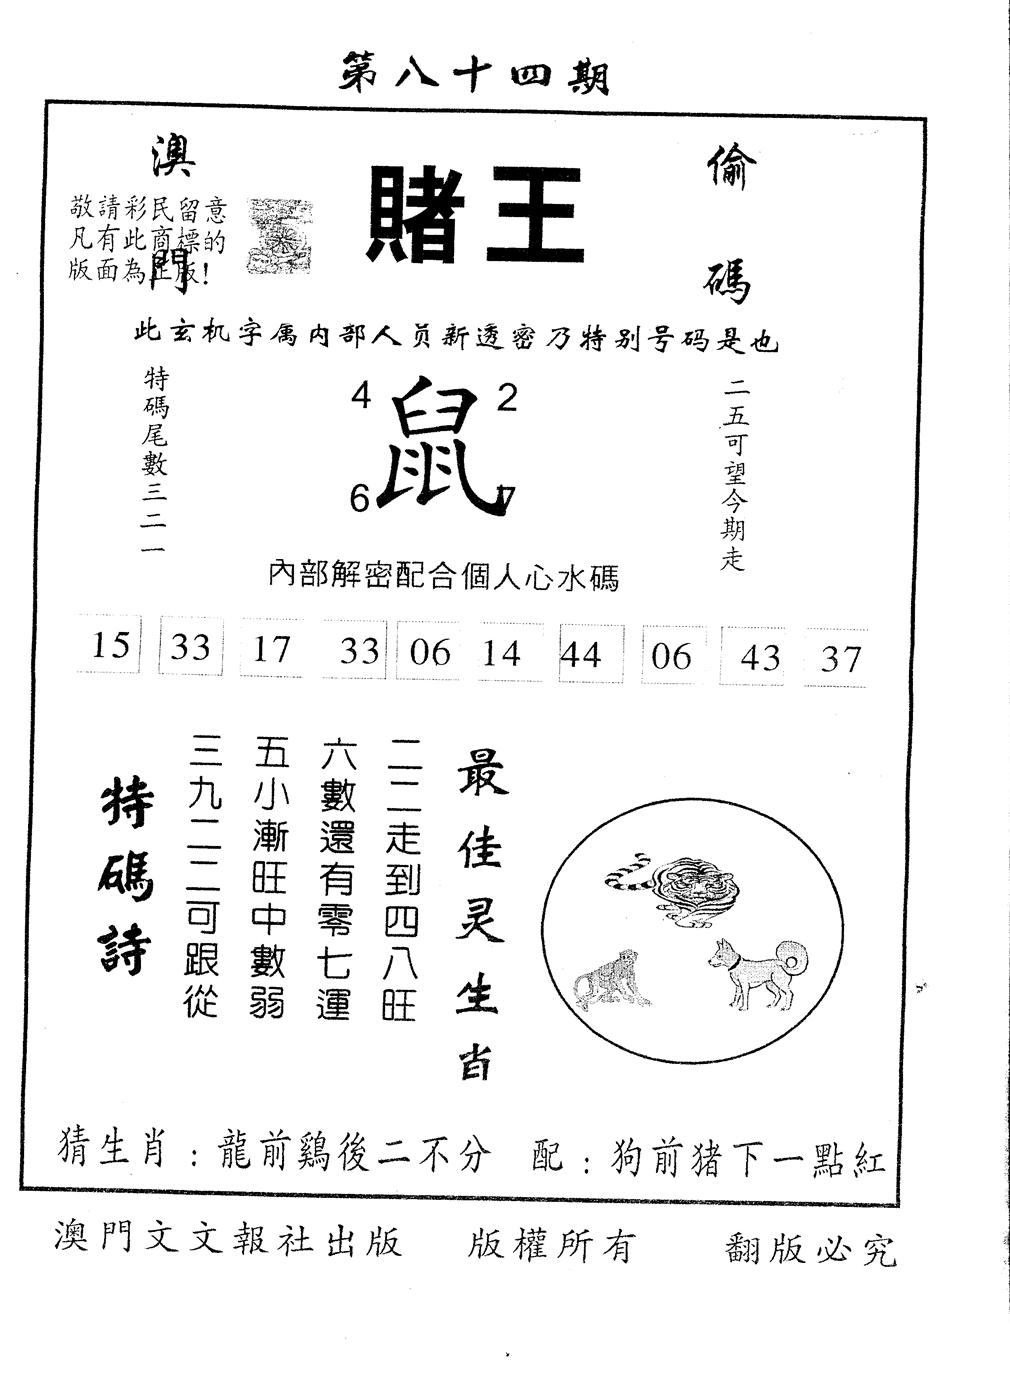 第八十四期
澳門
賭王
偷碼
敬請彩民留意
凡有此商標的
版面為正版!
此玄机字属内部人员新透密乃特别号码是也
特碼尾數三二一
4 2
鼠
6 7
二五可望今期走
內部解密配合個人心水碼
15 33 17 33 06 14 44 06 43 37
特碼詩
三九二二可跟從
五小漸旺中數弱
六數還有零七運
二二走到四八旺
最佳灵生肖
猜生肖：龍前鷄後二不分 配：狗前猪下一點紅
澳門文文報社出版 版權所有 翻版必究